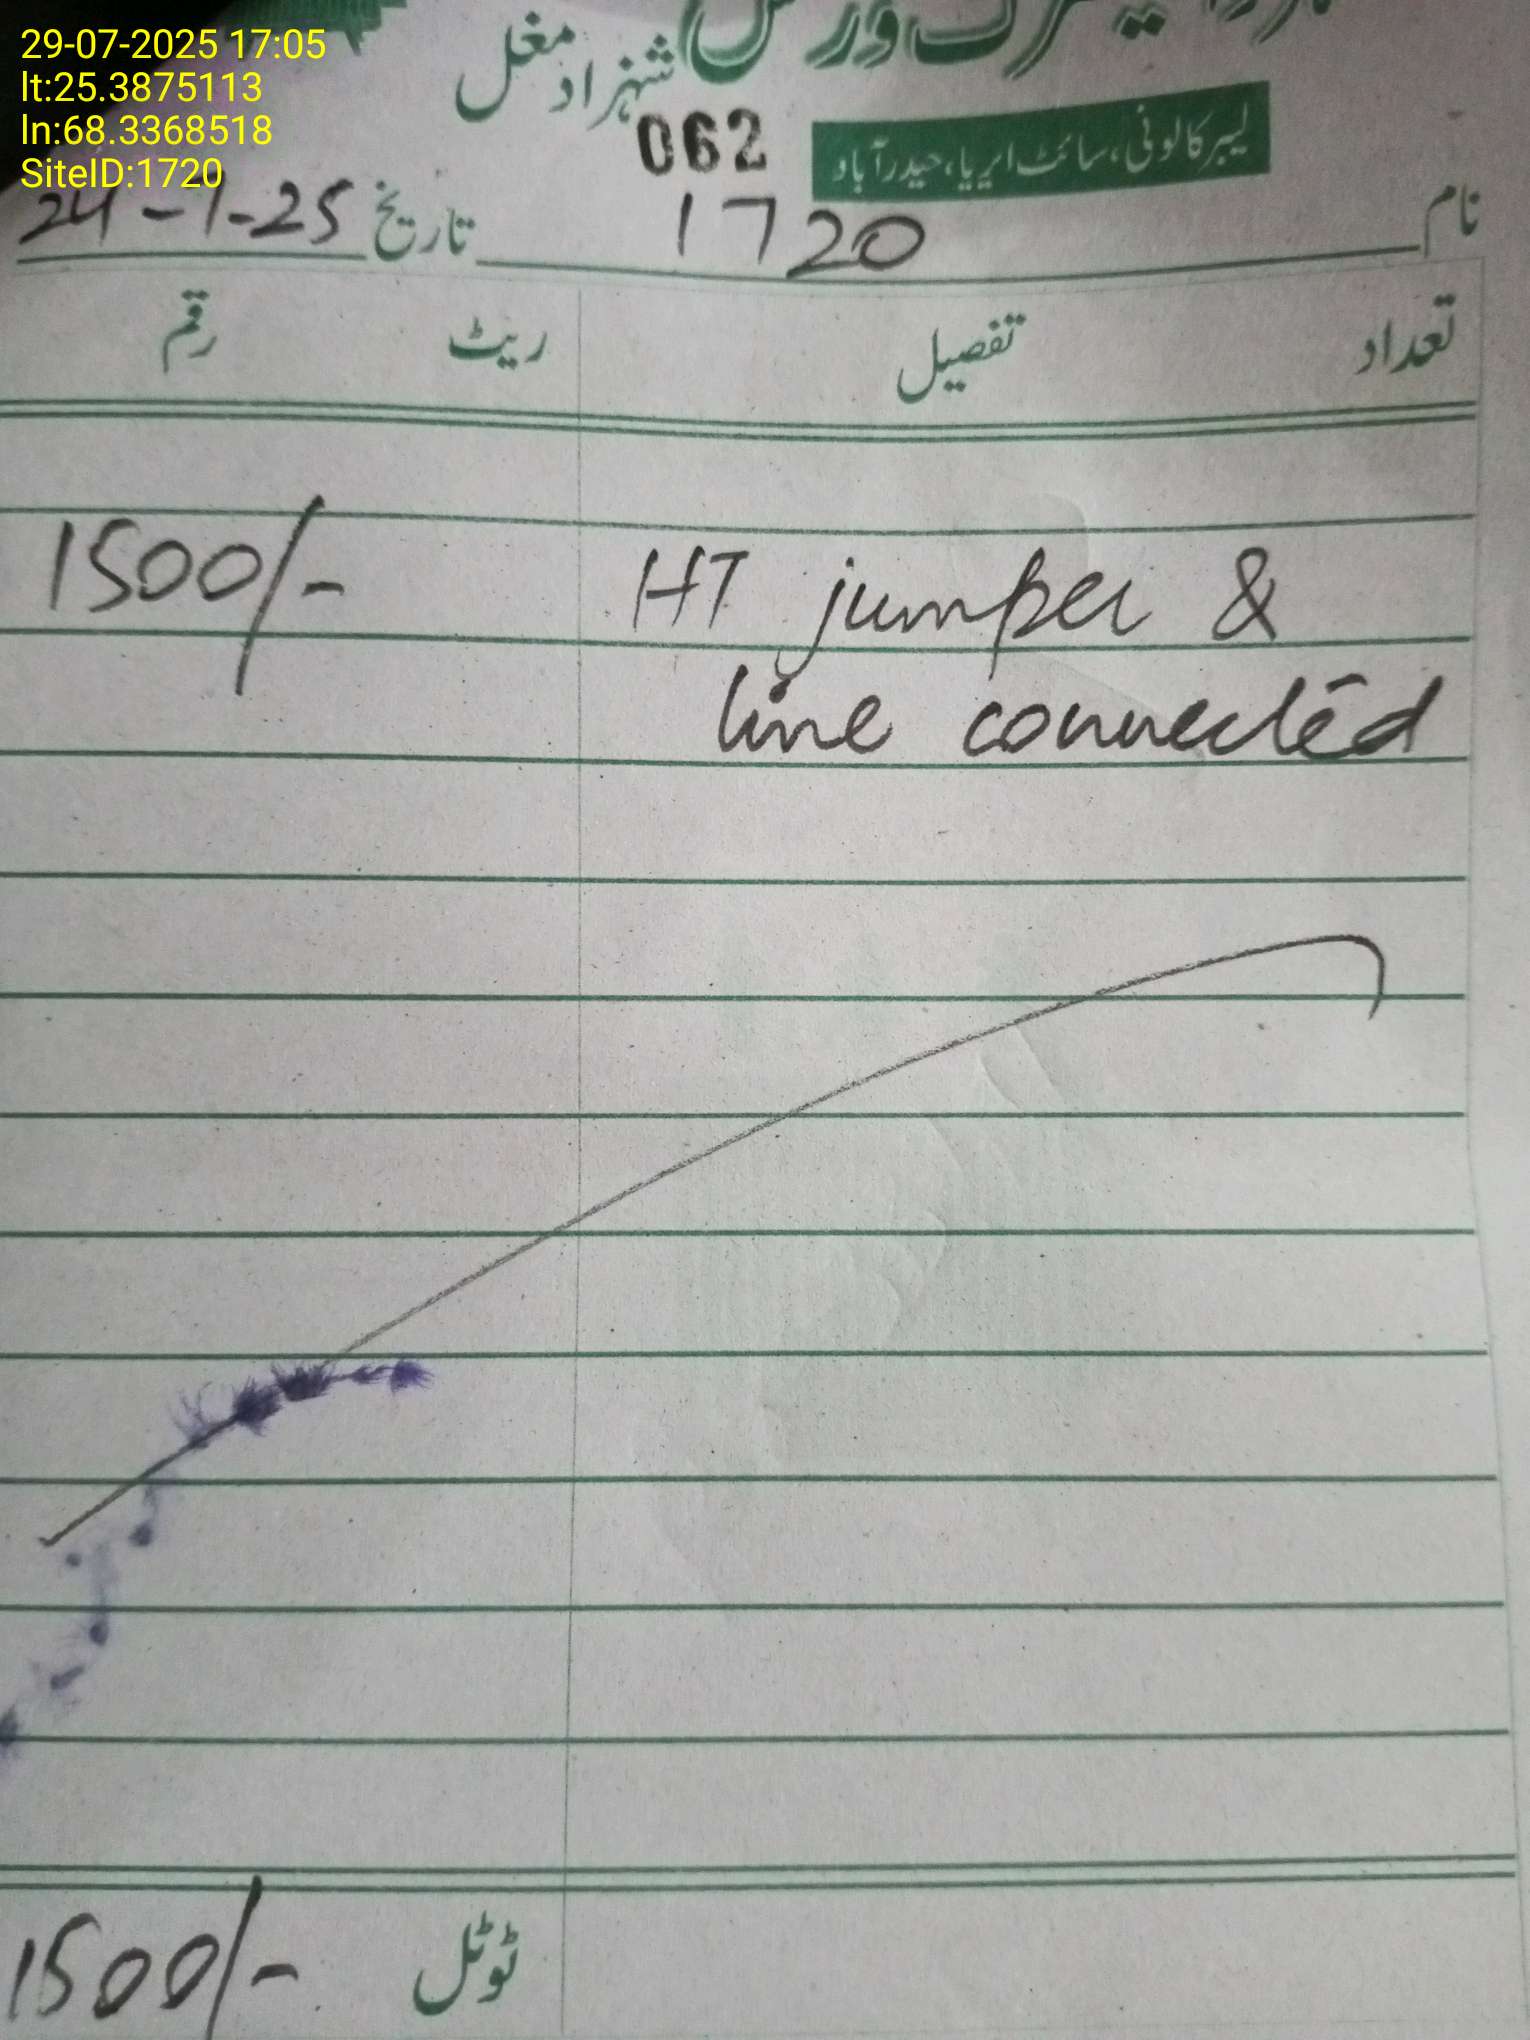 29-07-2025 17:05
lt:25.3875113
ln:68.3368518
SiteID:1720
شہزاد مغل
062
لیبر کالونی، سائٹ ایریا، حیدرآباد
نام 1720 تاریخ 24-1-25
تعداد تفصیل ریٹ رقم
HT jumper & 1500/-
line connected
ٹوٹل 1500/-